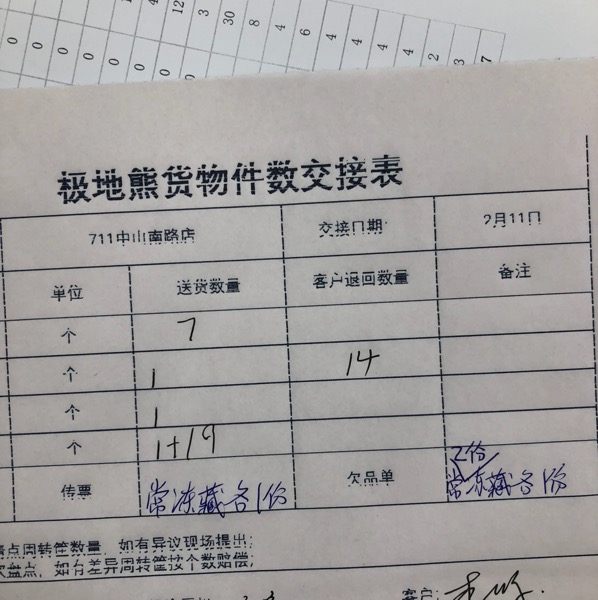 0 0 3 30 8 4 6
0 0 0 0 0 4 4 4 4 2 3 7
极地熊货物件数交接表
711中山南路店 交接日期: 2月11日
单位 送货数量 客户退回数量 备注
个 7
个 1 14
个 1
个 1+19
传票 常冻藏各1份 欠品单 常冻藏各1份
2份
点周转筐数量,如有异议现场提出;
盘点,如有差异周转筐按个数赔偿;
客户: